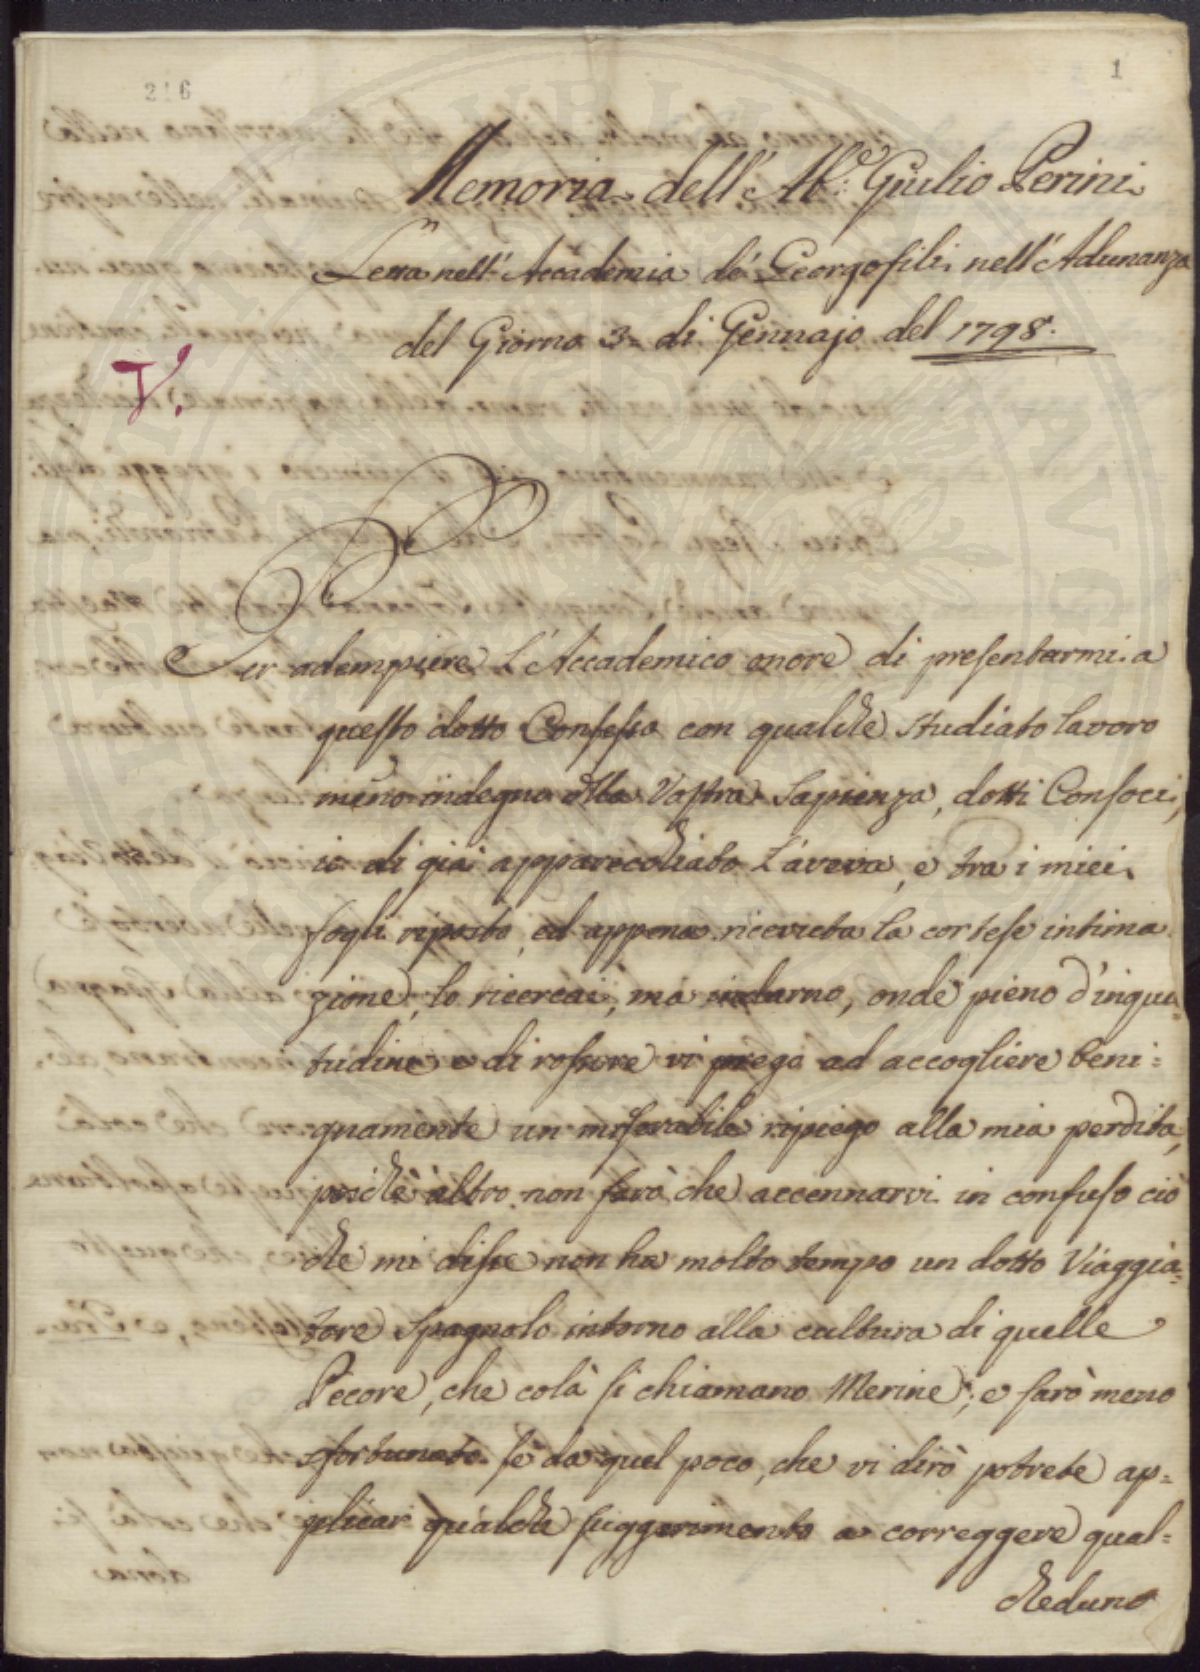 216
1
Memoria dell' Ab.e Giulio Perini
Letta nell' Accademia de' Georgofili nell' Adunanza
del Giorno 3 di Gennajo del 1798.
V.
Per adempiere l'Accademico onore di presentarmi a
questo dotto Consesso con qualche studiato lavoro
meno indegno della Vostra Sapienza, dotti Consoci,
io di già apparecchiato l'aveva, e tra i miei
fogli riposto, ed appena ricevuta la cortese intima
zione, lo ricercai, ma indarno, onde pieno d'inquie
tudine e di rossore vi prego ad accogliere beni=
gnamente un miserabile ripiego alla mia perdita,
poichè altro non farò che accennarvi in confuso ciò
che mi disse non ha molto tempo un dotto Viaggia=
tore Spagnolo intorno alla cultura di quelle
Pecore, che colà si chiamano Merine; e sarò meno
sfortunato se da quel poco, che vi dirò potrete ap=
plicar qualche suggerimento a correggere qual=
cheduno